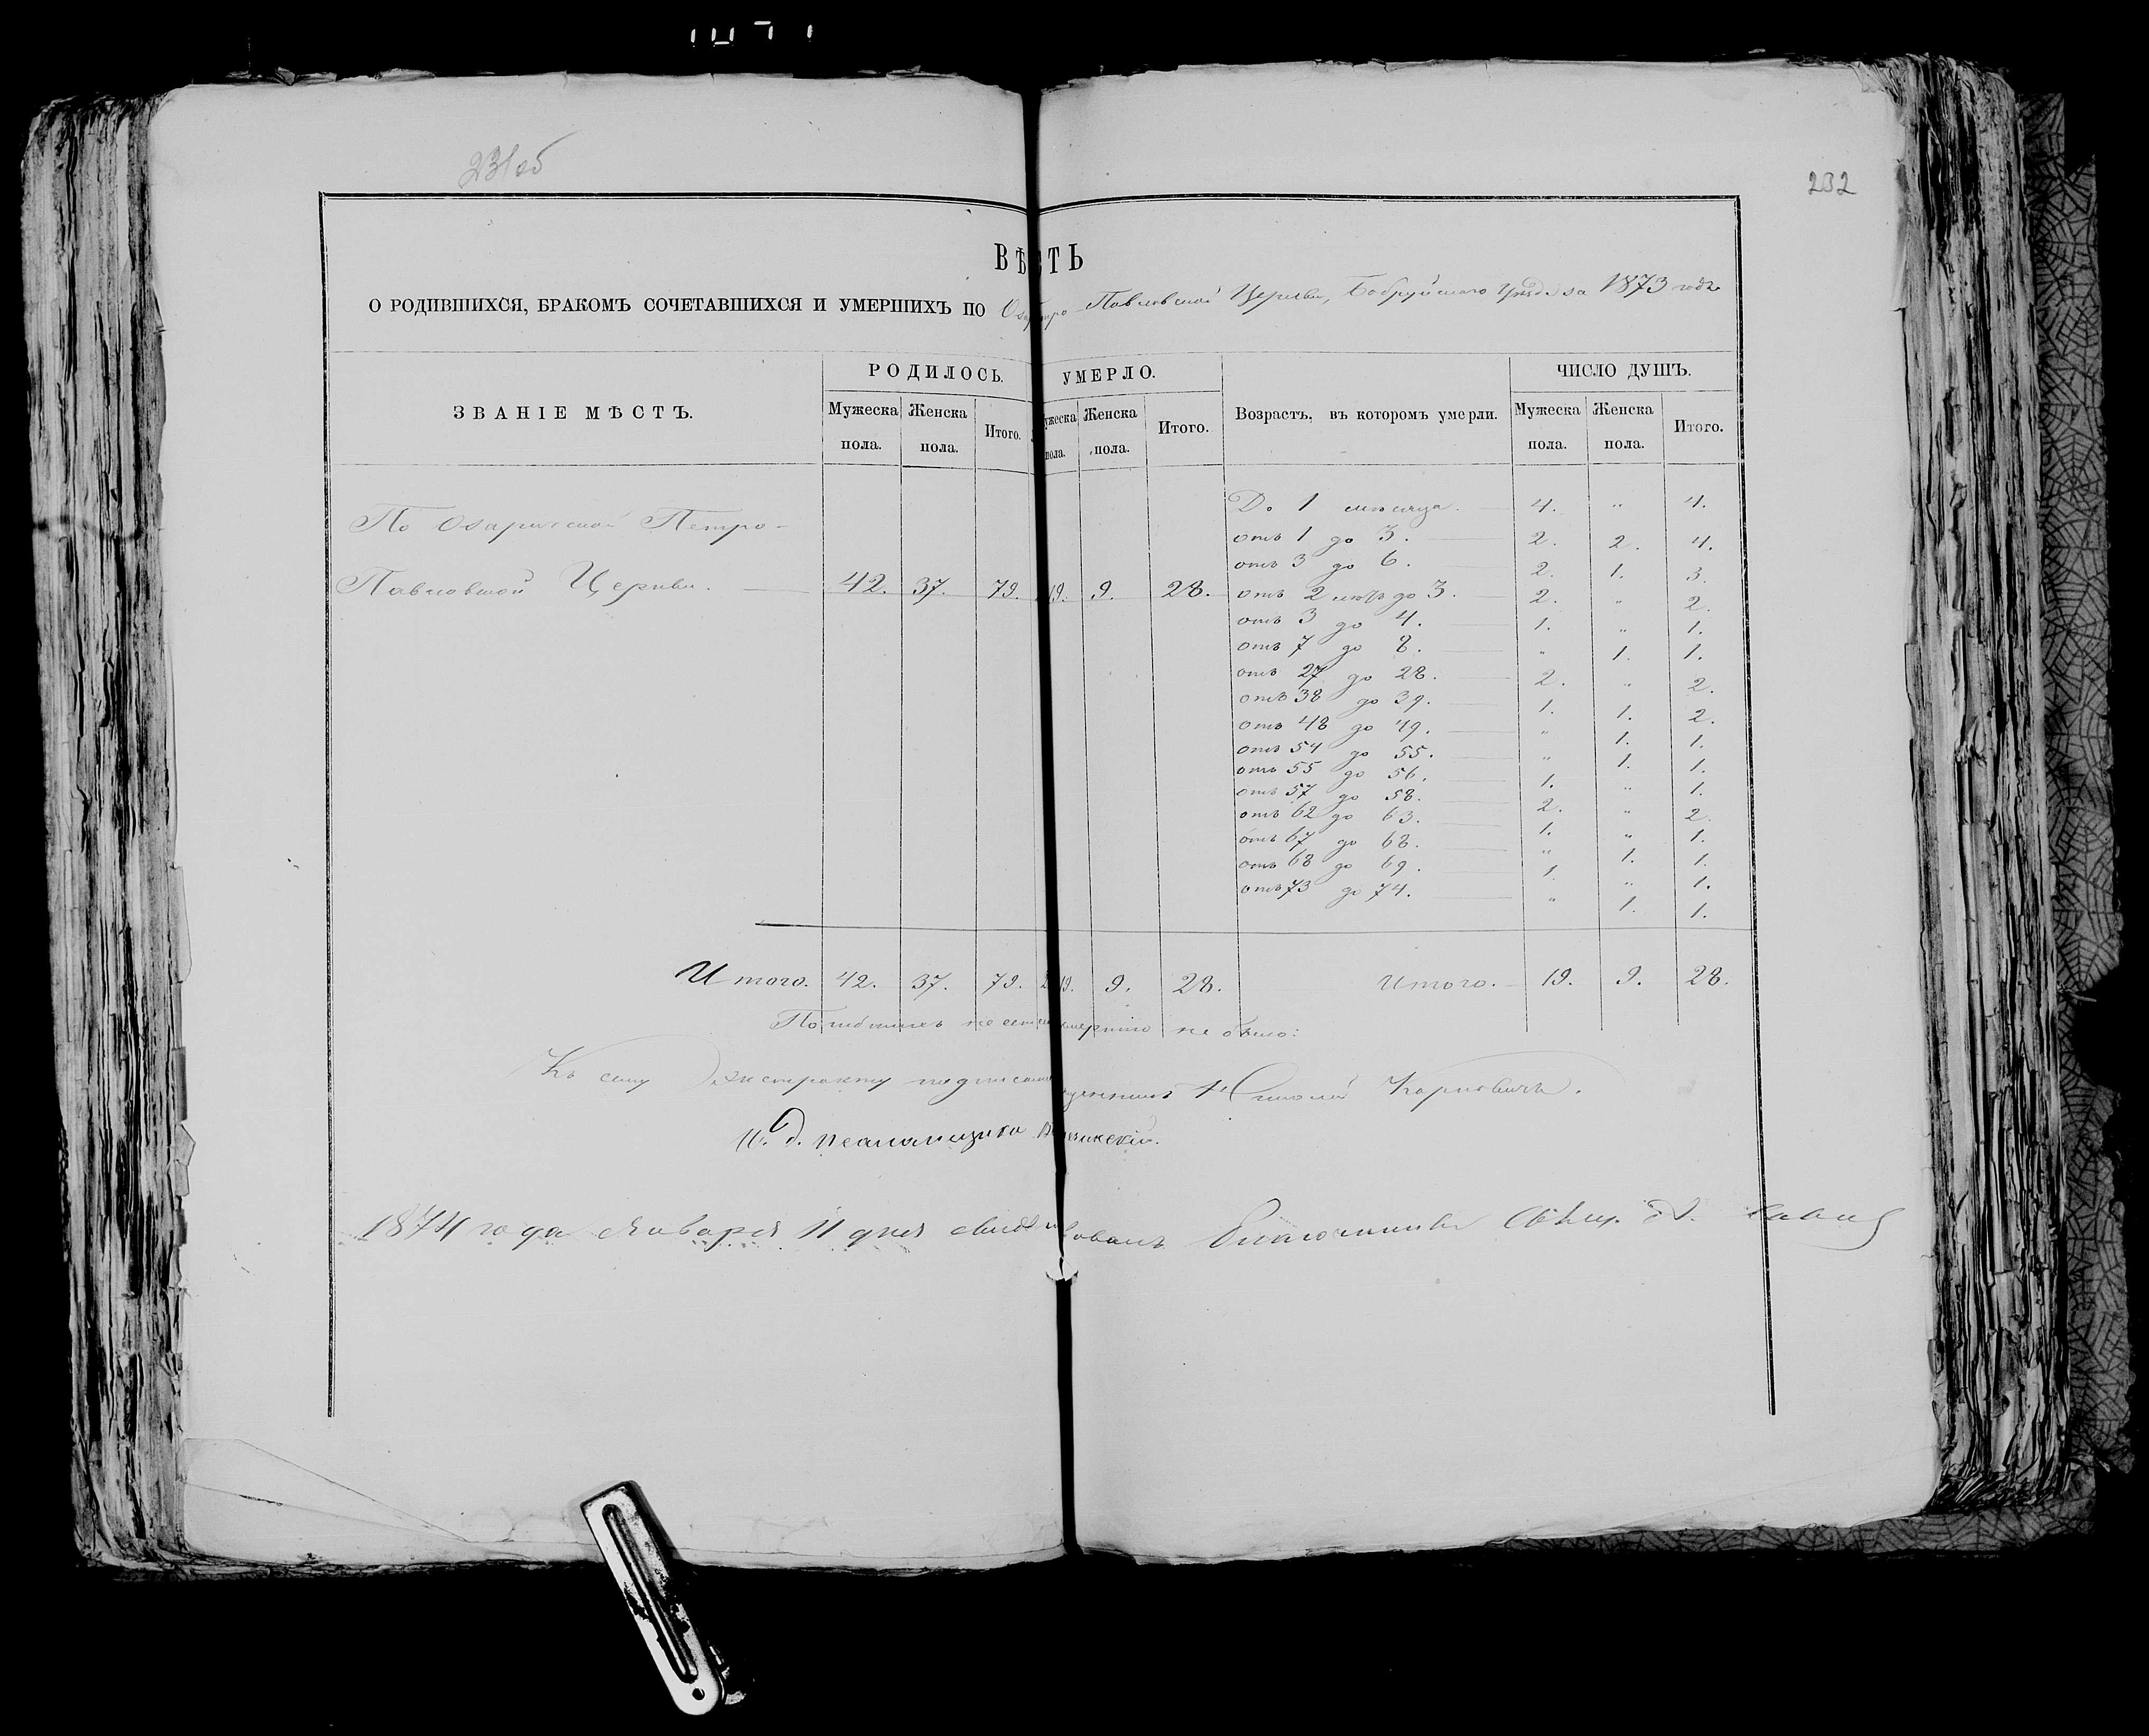 231об
232
ВѢСТЬ
О РОДИВШИХСЯ, БРАКОМЪ СОЧЕТАВШИХСЯ И УМЕРШИХЪ ПО Павловской Церкви, Бобруйскаго Уѣзда за 1873 годъ
ЗВАНІЕ МѢСТЪ. РОДИЛОСЬ. УМЕРЛО. Возрастъ, въ которомъ умерли. ЧИСЛО ДУШЪ.
Мужеска пола. Женска пола. Итого. ужеска пола. Женска пола. Итого. Мужеска пола. Женска пола. Итого.
До 1 мѣсяца. 4. „ 4.
По Озаричской Петро-
отъ 1 до 3. 2. 2. 4.
отъ 3 до 6. 2. 1. 3.
Павловской Церкви. 42. 37. 79. 19. 9. 28.
отъ 2 лѣтъ до 3. 2. „ 2.
отъ 3 до 4. 1. „ 1.
отъ 7 до 8. „ 1. 1.
отъ 27 до 28. 2. „ 2.
отъ 38 до 39. 1. 1. 2.
отъ 48 до 49. „ 1. 1.
отъ 54 до 55. „ 1. 1.
отъ 55 до 56. 1. „ 1.
отъ 57 до 58. 2. „ 2.
отъ 62 до 63. 1. „ 1.
отъ 67 до 68. „ 1. 1.
отъ 68 до 69. 1. „ 1.
отъ 73 до 74. „ 1. 1.
Итого. 42. 37. 79. 19. 9. 28. Итого. 19. 9. 28.
не было:
Къ сему Экстракту подписался Карповичъ.
И. д. псаломщика
1874 года Января 11 дня Благочинный Свящ.